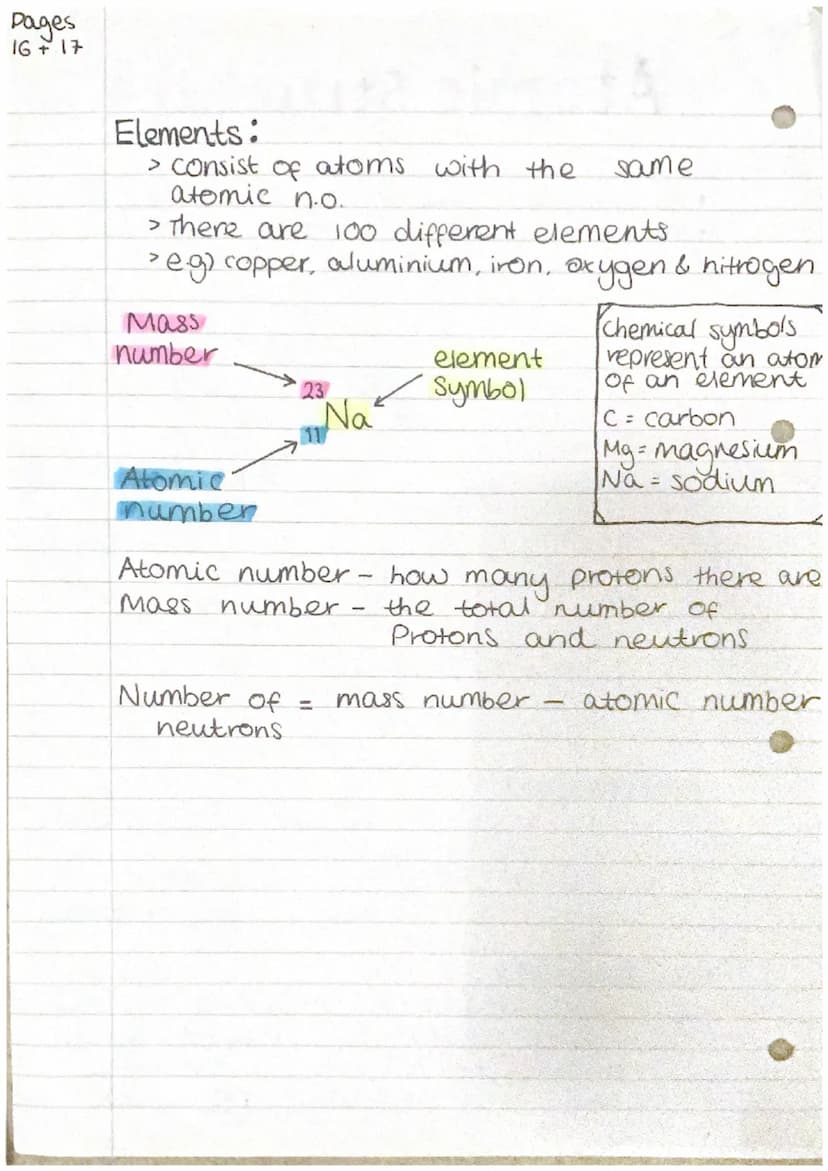 Pages
16 + 17
Elements:
> consist of atoms with the same
atomic n.o.
> There are 100 different elements
> e.g) copper, aluminium, iron, oxygen & nitrogen
Mass
number
23
Na
11
element
symbol
Atomic
number
Chemical symbols
represent an atom
of an element
C = carbon
Mg = magnesium
Na = sodium
Atomic number - how many protons there are
Mass number - the total number of
Protons and neutrons
Number of = mass number - atomic number
neutrons